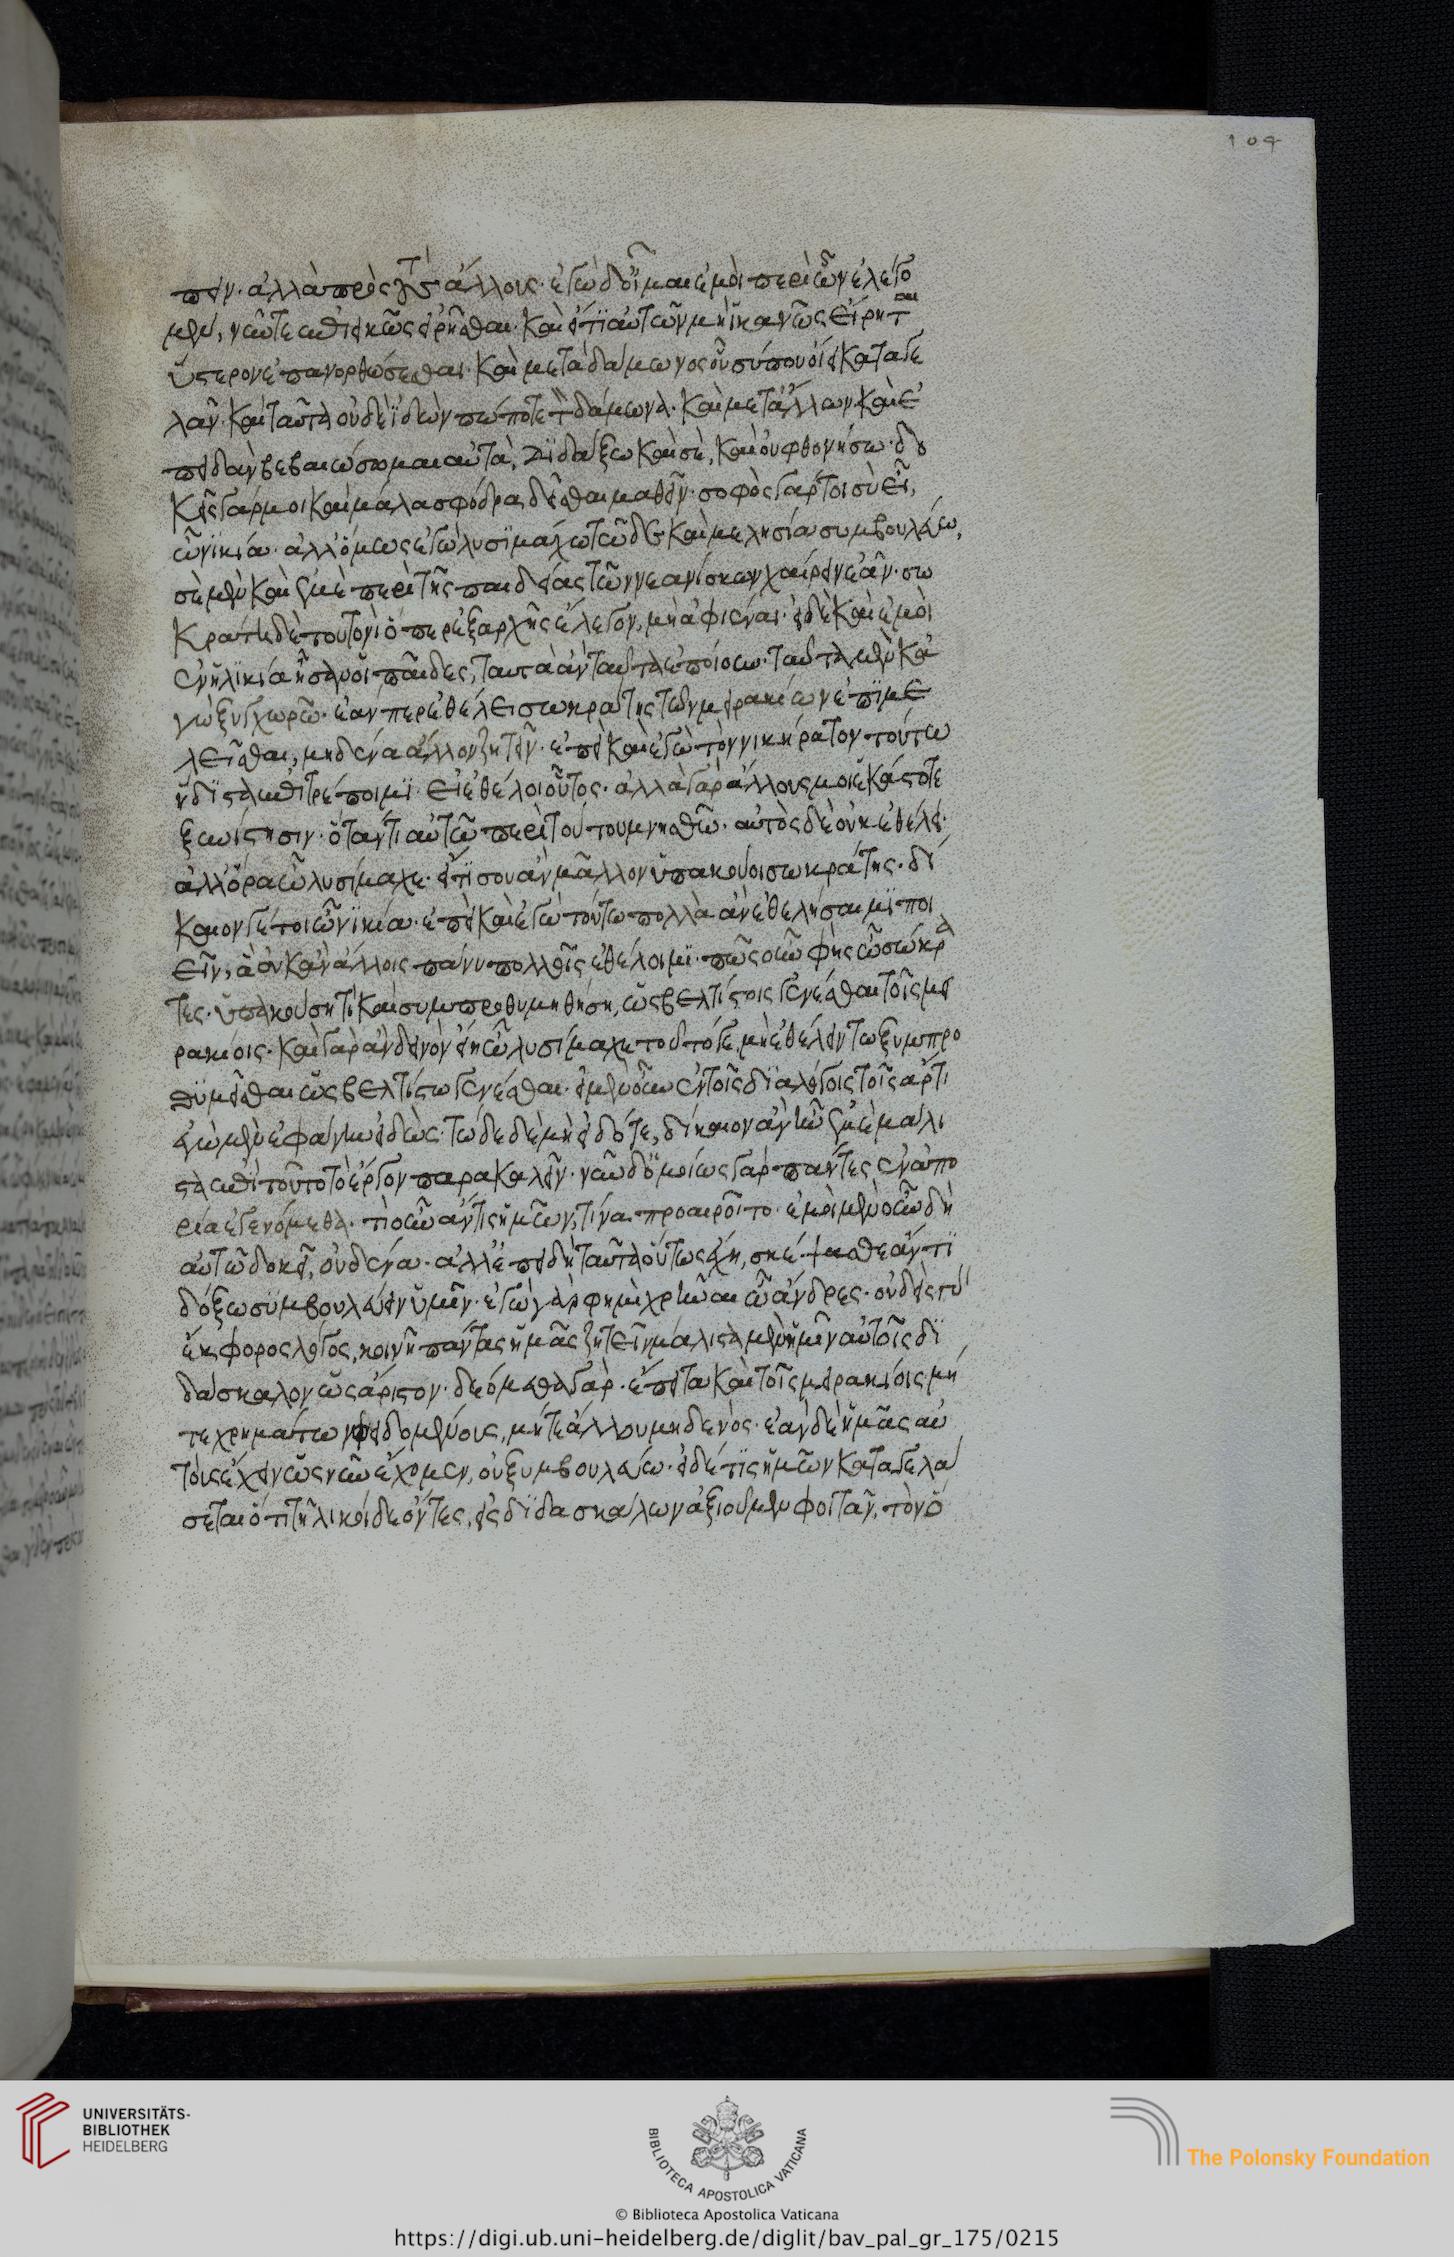 104
πειν· ἀλλὰ πρὸς τοὺς ἄλλους· ἐγὼ δ' οἶμαι ἐμοὶ περὶ ὧν ἐλέγο
μεν, νῦν τε ἐπιεικῶς εἰρῆσθαι· καὶ εἴ τι αὐτῶν μὴ ἱκανῶς εἴρηται
ὕστερον ἐπανορθώσεσθαι· καὶ μετὰ δάμωνος οὗ σύ που οἴει καταγε
λᾶν· καὶ ταῦτα οὐδὲ ἰδὼν πώποτε τὸν δάμωνα· καὶ μετ' ἄλλων· καὶ ἐ
πειδὰν βεβαιώσωμαι αὐτὰ, διδάξω καὶ σὲ, καὶ οὐ φθονήσω· δο
κεῖς γάρ μοι καὶ μάλα σφόδρα δεῖσθαι μαθεῖν· σοφὸς γάρ τοι σὺ εἶ,
ὦ νικία· ἀλλ' ὅμως ἐγὼ λυσιμάχω τῶδε καὶ μελησία συμβουλεύω,
σὲ μὲν καὶ ἐμὲ περὶ τῆς παιδείας τῶν νεανίσκων χαίρειν ἐᾶν· σω
κράτη δὲ τουτονὶ ὅπερ ἐξ ἀρχῆς ἔλεγον, μὴ ἀφιέναι· εἰ δὲ καὶ ἐμοὶ
ἐν ἡλικία ἦσαν οἱ παῖδες, ταυτὰ ἂν ταῦτα ἐποίουν· ταῦτα μὲν κἀ
γὼ ξυγχωρῶ· ἐάνπερ ἐθέλει σωκράτης τῶν μειρακίων ἐπιμε
λεῖσθαι, μηδένα ἄλλον ζητεῖν· ἐπεὶ κἂν ἐγὼ τὸν νικήρατον τούτω
ἥδιστα ἐπιτρέποιμι· εἰ ἐθέλοι οὗτος· ἀλλὰ γὰρ ἄλλους μοι ἑκάστοτε
ξυνίστησιν· ὅταν τι αὐτῶ περὶ τούτου μνησθῶ· αὐτὸς δὲ οὐκ ἐθέλει·
ἀλλ' ὅρα ὦ λυσίμαχε· εἴ τι σου ἂν μᾶλλον ὑπακούοι σωκράτης· δί
καιόν γέ τοι ὦ νικία· ἐπεὶ καὶ ἐγὼ τούτω πολλὰ ἂν ἐθελήσαιμι ποι
εῖν, ἃ οὐκ ἂν ἄλλοις πάνυ πολλοῖς ἐθέλοιμι· πῶς οὖν φὴς ὦ σώκρα
τες· ὑπακούση τὶ καὶ συμπροθυμηθήση, ὡς βελτίστοις γενέσθαι τοῖς μει
ρακίοις· καὶ γὰρ ἂν δεινὸν εἴη ὦ λυσίμαχε τοῦτό γε, μὴ ἐθέλειν τω ξυμπρο
θυμεῖσθαι ὡς βελτίστω γενέσθαι· εἰ μὲν οὖν ἐν τοῖς διαλόγοις τοῖς ἄρτι
ἐγὼ μὲν ἐφαίνην εἰδὼς· τώδε δὲ μὴ εἰδότε, δίκαιον ἂν ἦν ἐμὲ μάλι
στα ἐπὶ τοῦτο τὸ ἔργον παρακαλεῖν· νῦν δ' ὁμοίως γὰρ πάντες ἐν ἀπο
ρία ἐγενόμεθα· τί οὖν ἄν τις ἡμῶν, τίνα προαιροῖτο· ἐμοὶ μὲν οὖν δὴ
αὐτῶ δοκεῖ, οὐδένα· ἀλλ' ἐπειδὴ ταῦτα οὕτως ἔχει, σκέψασθε ἄν τι
δόξω συμβουλεύειν ὑμῖν· ἐγὼ γὰρ φημὶ χρῆναι ὦ ἄνδρες· οὐδεὶς γὰρ
ἔκφορος λόγος, κοινῆ πάντας ἡμᾶς ζητεῖν μάλιστα μὲν ἡμῖν αὐτοῖς δι
δάσκαλον ὡς ἄριστον· δεόμεθα γὰρ· ἔπειτα καὶ τοῖς μειρακίοις μή
τε χρημάτων φειδομένους, μήτε ἄλλου μηδενὸς· ἐὰν δὲ ἡμᾶς αὐ
τοὺς ἔχειν ὡς νῦν ἔχομεν, οὐ ξυμβουλεύω· εἰ δέ τις ἡμῶν καταγελά
σεται ὅτι τηλικοίδε ὄντες, εἰς διδασκάλων ἀξιοῦμεν φοιτᾶν, τὸν ὅ
UNIVERSITÄTS-
BIBLIOTHEK
HEIDELBERG
BIBLIOTECA APOSTOLICA VATICANA
© Biblioteca Apostolica Vaticana
The Polonsky Foundation
https://digi.ub.uni-heidelberg.de/diglit/bav_pal_gr_175/0215